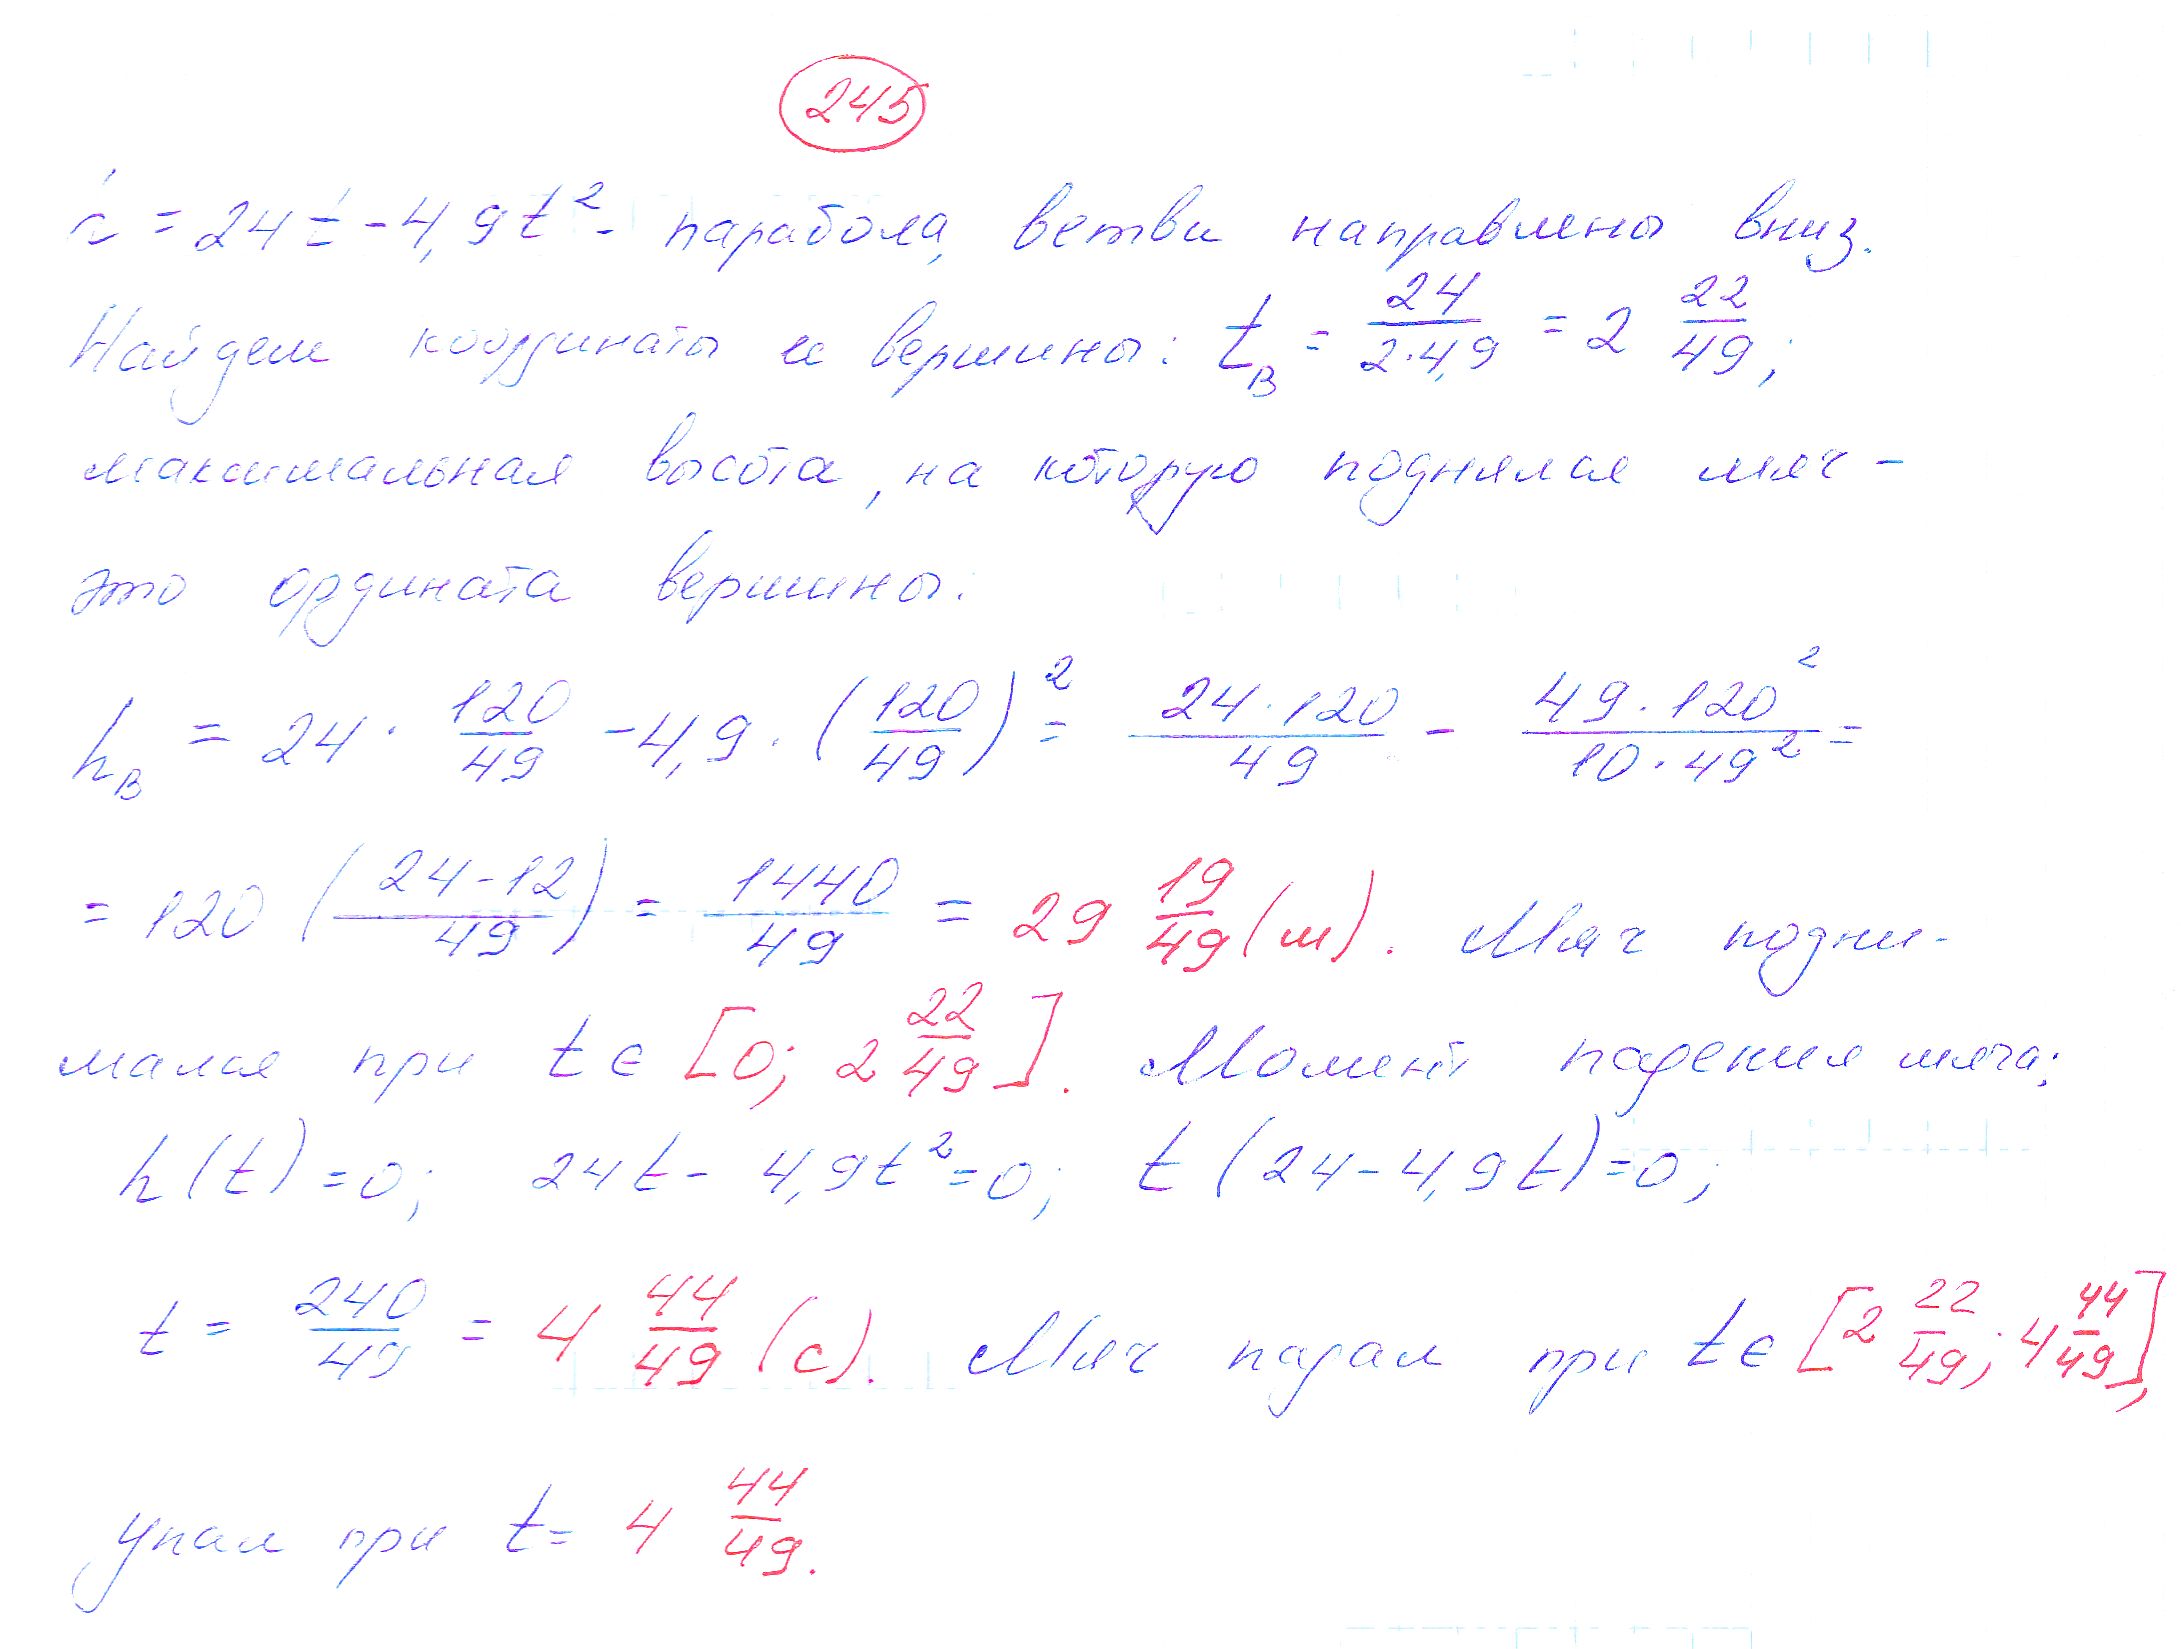 245
h = 24t - 4,9t² - парабола, ветви направлены вниз.
Найдем координаты ее вершины: t_в = 24/(2·4,9) = 2 22/49;
максимальная высота, на которую поднялся мяч -
это ордината вершины:
h_в = 24 · 120/49 - 4,9 · (120/49)² = (24·120)/49 - (49·120²)/(10·49²) =
= 120 ((24-12)/49) = 1440/49 = 29 19/49 (м). Мяч подни-
мался при t ∈ [0; 2 22/49]. Момент падения мяча:
h(t) = 0; 24t - 4,9t² = 0; t(24 - 4,9t) = 0;
t = 240/49 = 4 44/49 (с). Мяч падал при t ∈ [2 22/49; 4 44/49],
упал при t = 4 44/49.